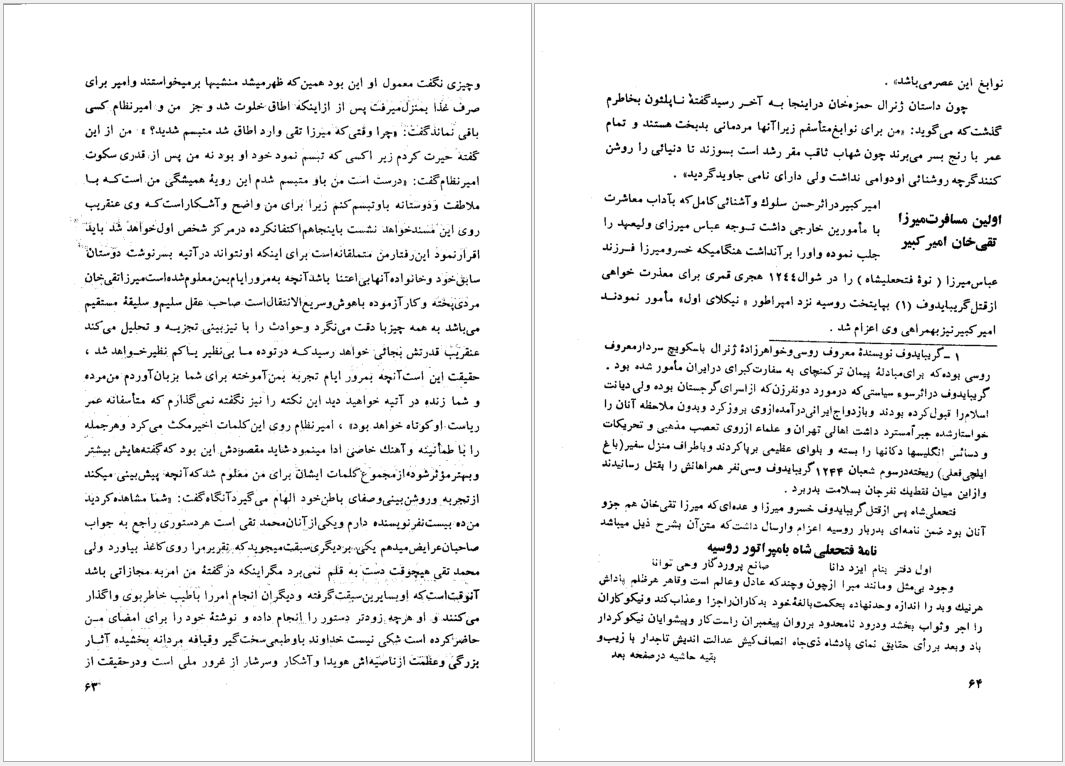 وچیزی نگفت معمول او این بود همین‌که ظهرمیشد منشیها برمیخواستند وامیر برای
صرف غذا بمنزل‌میرفت پس از ازاینکه اطاق خلوت شد و جز من و امیرنظام کسی
باقی نماندگفت: «چرا وقتی‌که میرزا تقی وارد اطاق شد متبسم شدید؟» من از این
گفته حیرت کردم زیر اکسی که تبسم نمود خود او بود نه من پس از قدری سکوت
امیرنظام‌گفت: «درست است من باو متبسم شدم این رویهٔ همیشگی من است‌که بـا
ملاطفت ودوستانه باوتبسم‌کنم زیرا برای من واضح وآشکاراست‌که وی عنقریب
روی این مسندخواهد نشست باینجاهم‌اکتفانکرده درمرکز شخص اول‌خواهد شد باید
اقرارنمود این‌رفتارمن متملقانه‌است برای اینکه اونتواند درآتیه بسرنوشت دوستان
سابق‌خود وخانواده‌آنهابی‌اعتنا باشدآنچه به‌مرورایام‌بمن‌معلوم‌شده‌است‌میرزاتقی‌خان
مردی‌پخته وکارآزموده باهوش‌وسریع‌الانتقال‌است صاحب عقل سلیم‌و سلیقهٔ مستقیم
می‌باشد به همه چیزبا دقت می‌نگرد وحوادث را با تیزبینی تجزیـه و تحلیل می‌کند
عنقریب قدرتش بجائی خواهد رسیدکـه درتوده مـا بی‌نظیر یاکم نظیرخـواهد شد ،
حقیقت این است‌آنچه بمرور ایام تجربه بمن‌آموخته برای شما بزبان‌آوردم من‌مرده
و شما زنده در آتیه خواهید دید این نکته را نیز نگفته نمی‌گذارم که متأسفانه عمر
ریاست اوکوتاه خواهد بود» ، امیرنظام روی این‌کلمات اخیرمکث می‌کرد وهرجمله
را با طمأنینه وآهنك خاصی ادا مینمودشاید مقصودش این بود که‌گفته‌هایش بیشتر
وبهترمؤثرشودازمجموع‌کلمات ایشان برای من معلوم شدکه‌آنچه پیش‌بینی میکند
ازتجربه وروشن‌بینی‌وصفای باطن‌خود الهام می‌گیردآنگاه‌گفت: «شما مشاهده‌کردید
من‌ده بیست‌نفرنویسنده دارم ویکی‌ازآنان‌محمد تقی است هردستوری راجع به جواب
صاحبان‌عرایض‌میدهم یکی‌بردیگری‌سبقت‌میجویدکه تقریرمرا روی‌کاغذ بیاورد ولی
محمد تقی هیچوقت دست به قلم نمی‌برد مگراینکه درگفتهٔ من امربه مجازاتی باشد
آنوقت‌است‌که اوبسایرین‌سبقت‌گرفته ودیگران انجام امررا باطیب خاطربوی واگذار
می‌کنند و او هرچه زودتر دستور را انجام داده و نوشتهٔ خود را برای امضای مـن
حاضرکرده است شکی نیست خداوند باوطبعی سخت‌گیر وقیافه مردانه بخشیده آثـار
بزرگی وعظمت ازناصیه‌اش هویدا وآشکار وسرشار از غرور ملی است ودرحقیقت از
۶۳
نوابغ این عصرمی‌باشد» .
چون داستان ژنرال حمزه‌خان دراینجا بـه آخـر رسیدگفتهٔ ناپلئون بخاطرم
گذشت‌که می‌گوید: «من برای نوابغ‌متأسفم زیراآنها مردمانی بدبخت هستند و تمام
عمر با رنج بسر می‌برند چون شهاب ثاقب مقر رشد است بسوزند تا دنیائی را روشن
کنندگرچه روشنائی اودوامی نداشت ولی دارای نامی جاویدگردید» .
اولین مسافرت‌میرزا
تقی‌خان امیرکبیر
امیرکبیردراثرحسن سلوك وآشنائی‌کامل‌که بآداب معاشرت
با مأمورین خارجی داشت تـوجه عباس میرزای ولیعهد را
جلب نموده واورا برآنداشت هنگامیکه خسرومیرزا فـرزند
عباس‌میرزا ( نوهٔ فتحعلیشاه ) را در شوال۱۲۴۴ هجری قمری برای معذرت خواهی
ازقتل‌گریبایدوف (۱) بپایتخت روسیه نزد امپراطور « نیکلای اول» مأمور نمودنـد
امیرکبیرنیزبهمراهی وی اعزام شد .
۱ – گریبایدوف نویسندهٔ معروف روسی‌وخواهرزادهٔ ژنرال باسکویچ سردارمعروف
روسی بوده‌که برای‌مبادلهٔ پیمان ترکمنچای به سفارت‌کبرای درایران مأمور شده بود .
گریبایدوف دراثرسوء سیاستی‌که درمورد دونفرزن‌که ازاسرای‌گرجستان بوده ولی دیانت
اسلام‌را قبول‌کرده بودند وبازدواج‌ایرانی‌درآمده‌ازوی بروزکرد وبدون ملاحظه آنان را
خواستارشده جبرآمسترد داشت اهالی تهران و علماء ازروی تعصب مذهبی و تحریکات
و دسائس انگلیسها دکانها را بسته و بلوای عظیمی برپاکردند وباطراف منزل سفیر(باغ
ایلچی‌فعلی) ریخته‌درسوم شعبان ۱۲۴۴گریبایدوف وسی‌نفر همراهانش را بقتل رسانیدند
وازاین میان فقط‌یك نفرجان بسلامت بدربرد .
فتحعلی‌شاه پس ازقتل‌گریبایدوف خسرو میرزا و عده‌ای‌که میرزا تقی‌خان هم جزو
آنان بود ضمن نامه‌ای بدربار روسیه اعزام وارسال داشت‌که متن‌آن بشرح ذیل میباشد
نامهٔ فتحعلی شاه بامپراتور روسیه
اول دفتر بنام ایزد دانا صانع پروردگار وحی توانا
وجود بی‌مثل ومانند مبرا ازچون وچندکه عادل وعالم است وقاهر هرظلم پاداش
هرنیك وبد را اندازه وحدنهاده بحکمت‌بالغهٔ‌خود بدکاران‌رازجرا وعذاب‌کند ونیکوکاران
را اجر وثواب بخشد ودرود نامحدود برروان پیغمبران راست‌کار وپیشوایان نیکوکردار
باد وبعد بررأی حقایق نمای پادشاه ذی‌جاه انصاف‌کیش عدالت اندیش تاجدار با زیب‌و
بقیه حاشیه درصفحه بعد
۶۴